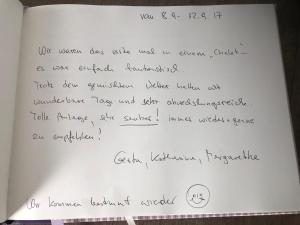 vom 8.9. - 12.9.17
Wir waren das erste mal in einem "Chalet" -
es war einfach fantastisch.
Trotz dem gemischten Wetter hatten wir
wunderbare Tage und sehr abwechslungsreiche.
Tolle Anlage, sehr sauber! immer wieder gerne
zu empfehlen!
Gerda, Katharina, Margarethe
Wir kommen bestimmt wieder